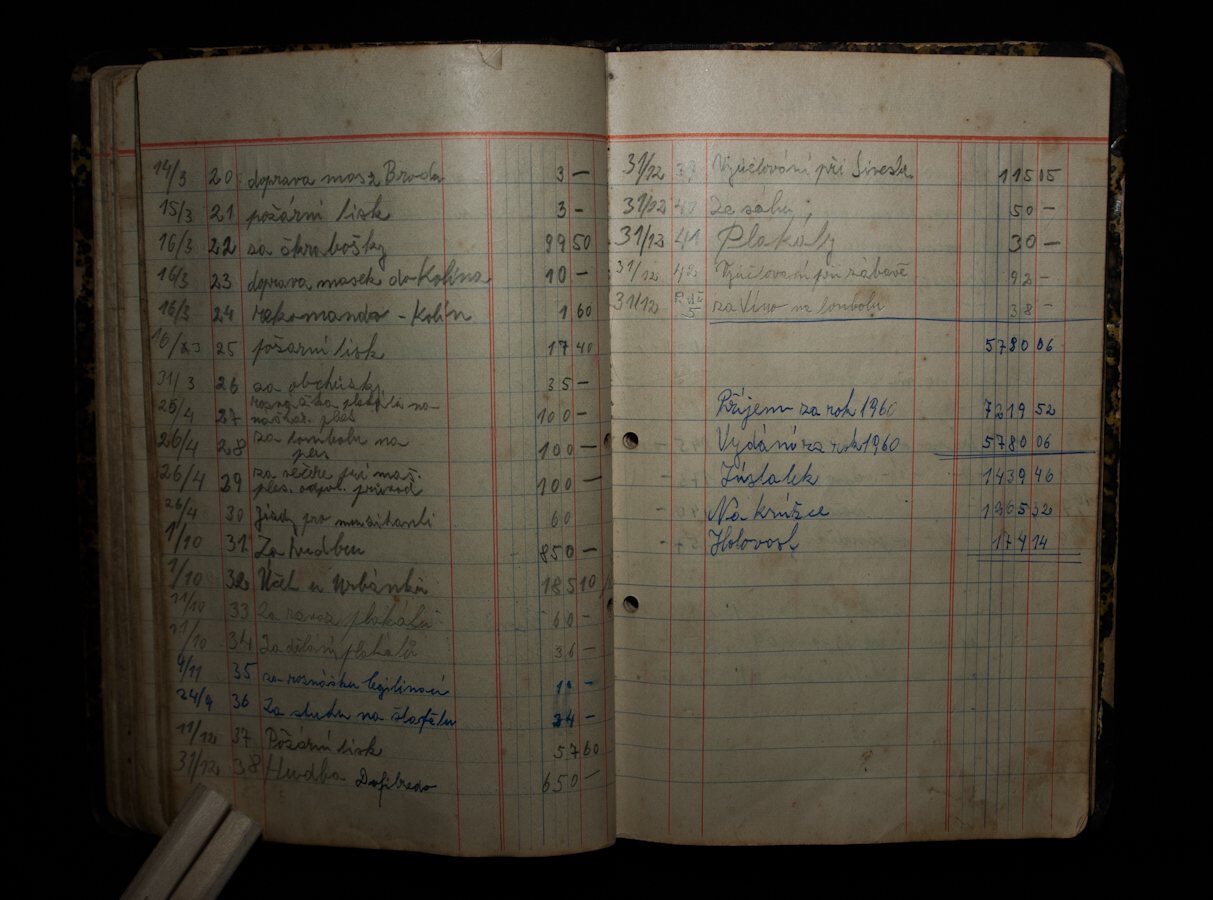 14/3 20 doprava masz Brodu 3 —
15/3 21 požární lisk 3 —
16/3 22 za škrabošky 99 50
16/3 23 doprava masek do Kolína 10 —
16/3 24 rekomando - Kolín 1 60
16/3 25 požarní lisk 17 40
31/3 26 za obchůsky 35 —
25/4 27 100 —
ples
26/4 28 za tombolu na 100 —
ples
26/4 29 za večeře při maš. 100 —
ples. odpol. průvod
26/4 30 pro 60
1/10 31 Za hudbu 850 —
1/10 32 Účet u Urbánků 185 10
21/10 33 Za rozvoz plakátů 60 —
21/10 34 Za dělání plakátů 36 —
9/11 35 za roznášku legitimací
24/9 36 Za stuhu na štafetu 24 —
11/12 37 Požární lisk 57 60
31/12 38 Hudba Dofibredo 650 —
31/12 39 Vyúčtování při Silvestr 115 15
31/12 40 Za sálu; 50 —
31/12 41 Plakaty 30 —
31/12 42 Vyúčtovaní při zábavě 92 —
31/12 za Víno na tombolu 38 —
5780 06
Příjem za rok 1960 7219 52
Vydání za rok 1960 5780 06
Zůstatek 1439 46
Na knížce 1265 32
Hotovost 174 14